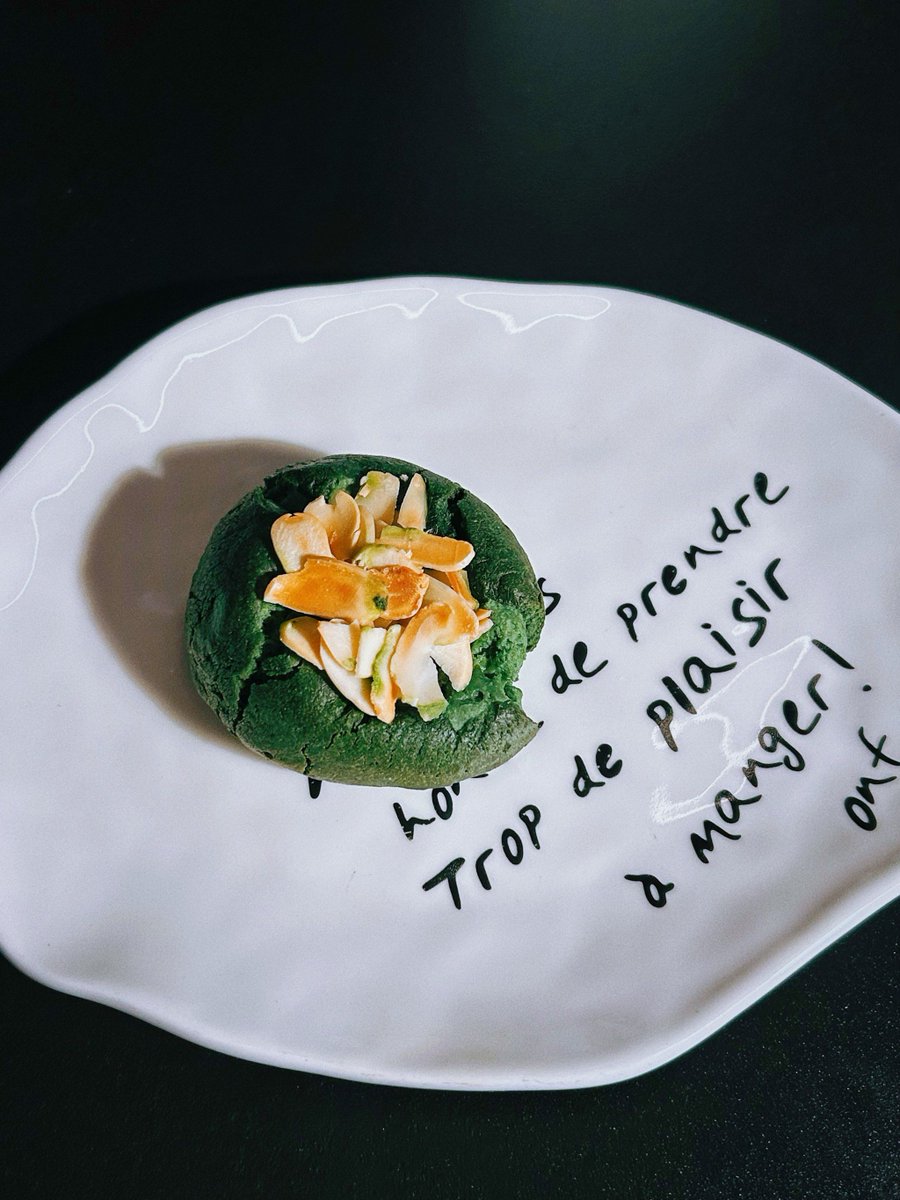 de prendre
Trop de plaisir
à manger!
ont